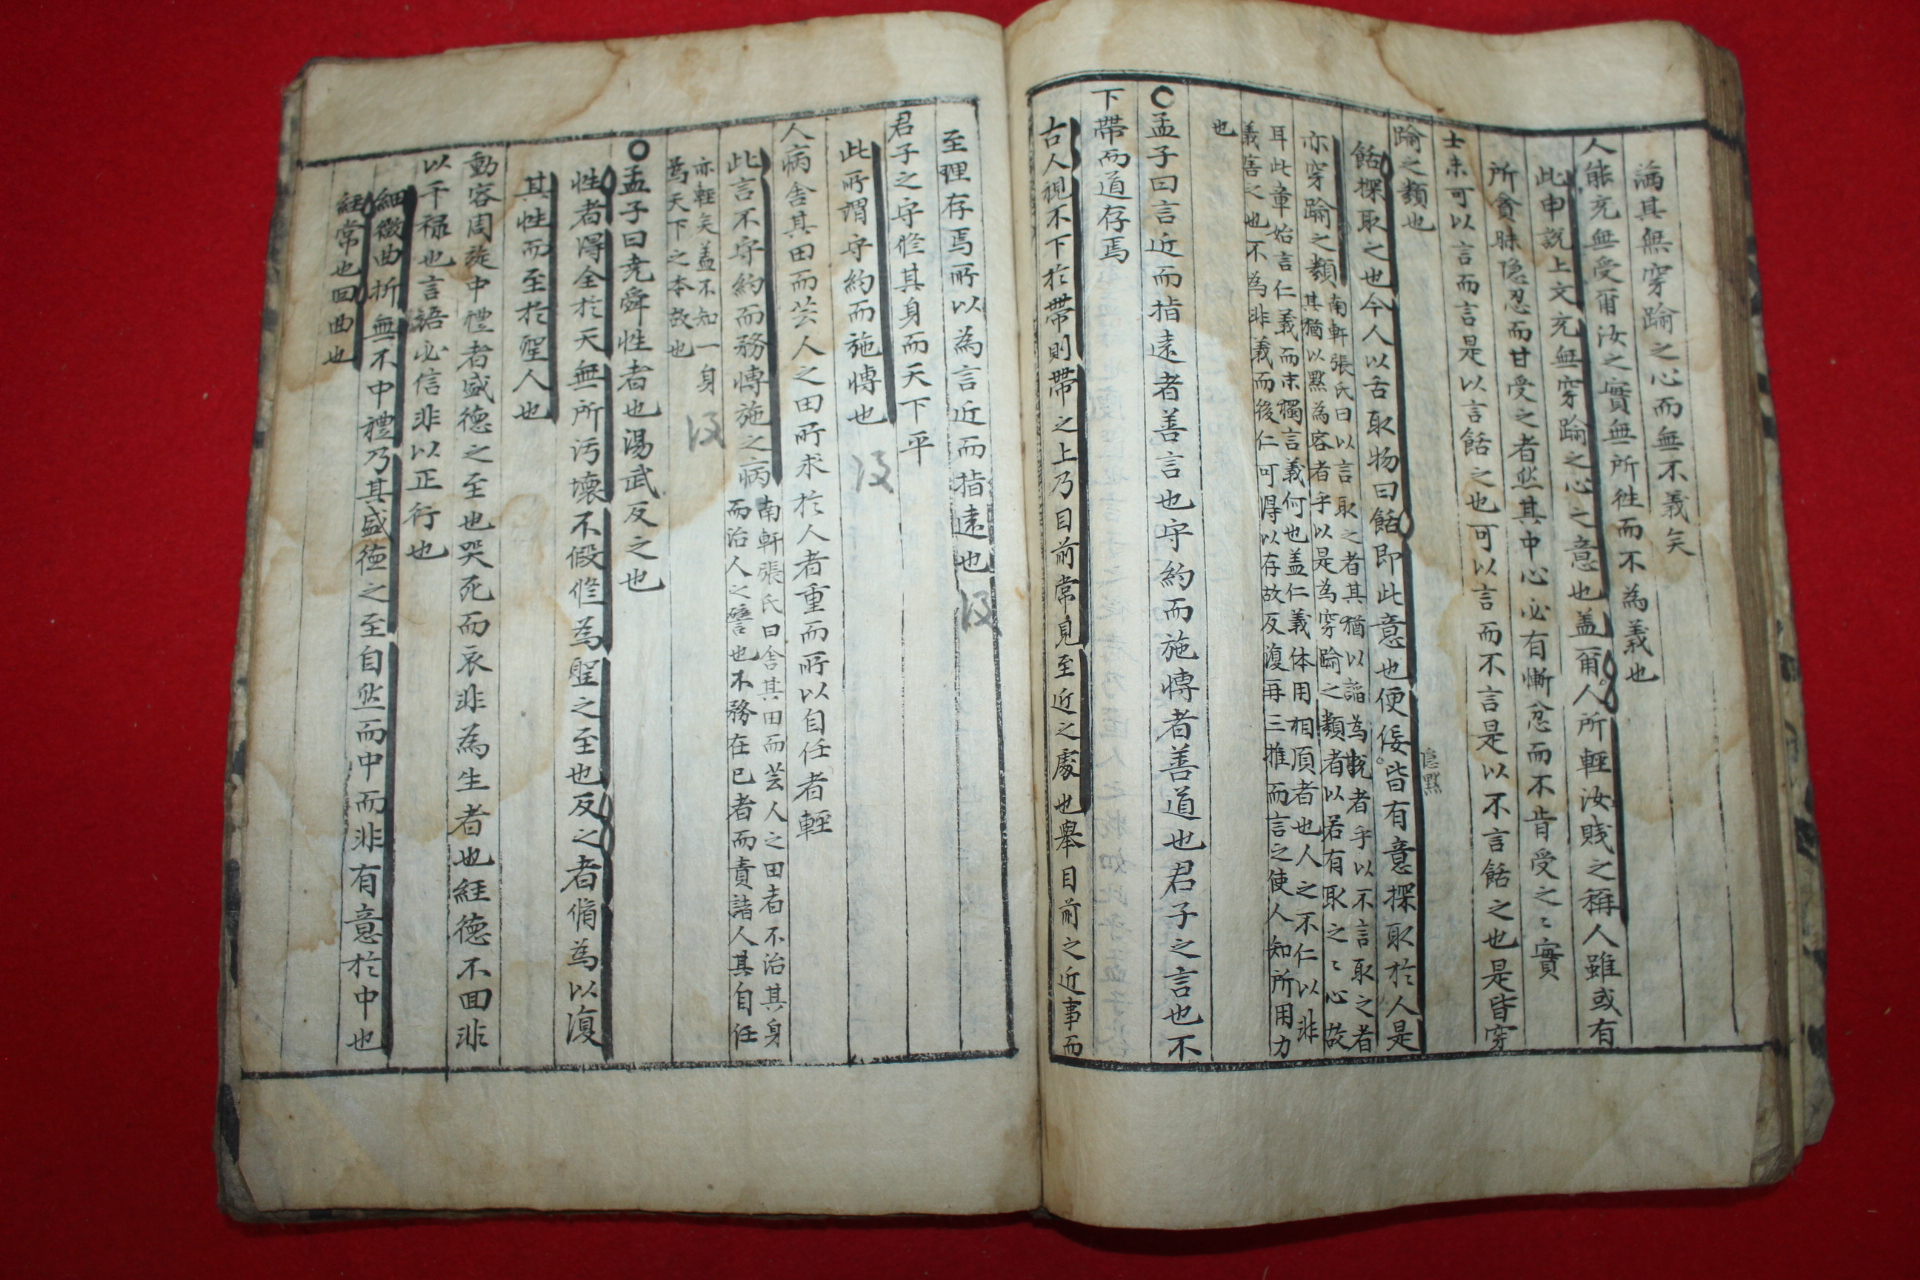 滿其無穿踰之心而無不義矣
人能充無受爾汝之實無所徃而不為義也
此申說上文充無穿踰之心之意也盖爾人所輕汝賤之稱人雖或有
所貪昧隐忍而甘受之者然其中心必有慚忿而不肯受之〻實
士未可以言而言是以言餂之也可以言而不言是以不言餂之也是皆穿
踰之類也
餂探取之也今人以舌取物曰餂即此意也便佞皆有意探取於人是
隐黙
亦穿踰之類
南軒張氏曰以言取之者其猶以謟為掑者乎以不言取之者
其猶以黙為容者乎以是為穿踰之類者以若有取之〻心故
耳此章始言仁義而末獨言義何也盖仁義体用相湏者也人之不仁以非
義害之也不為非義而後仁可得以存故反復再三推而言之使人知所用力
也
○孟子曰言近而指遠者善言也守約而施愽者善道也君子之言也不
下帶而道存焉
古人視不下於帶則帶之上乃目前常見至近之處也舉目前之近事而
至理存焉所以為言近而指遠也
君子之守修其身而天下平
此所謂守約而施愽也
人病舍其田而芸人之田所求於人者重而所以自任者輕
此言不守約而務愽施之病
南軒張氏曰舍其田而芸人之田者不治其身
而治人之譬也不務在已者而責諸人其自任
亦輕矣盖不知一身
為天下之本故也
○孟子曰尭舜性者也湯武反之也
性者得全於天無所汚壞不假修為聖之至也反之者脩為以復
其性而至於聖人也
動容周旋中禮者盛德之至也哭死而哀非為生者也經德不回非
以干禄也言語必信非以正行也
細微曲折無不中禮乃其盛德之至自然而中而非有意於中也
經常也回曲也